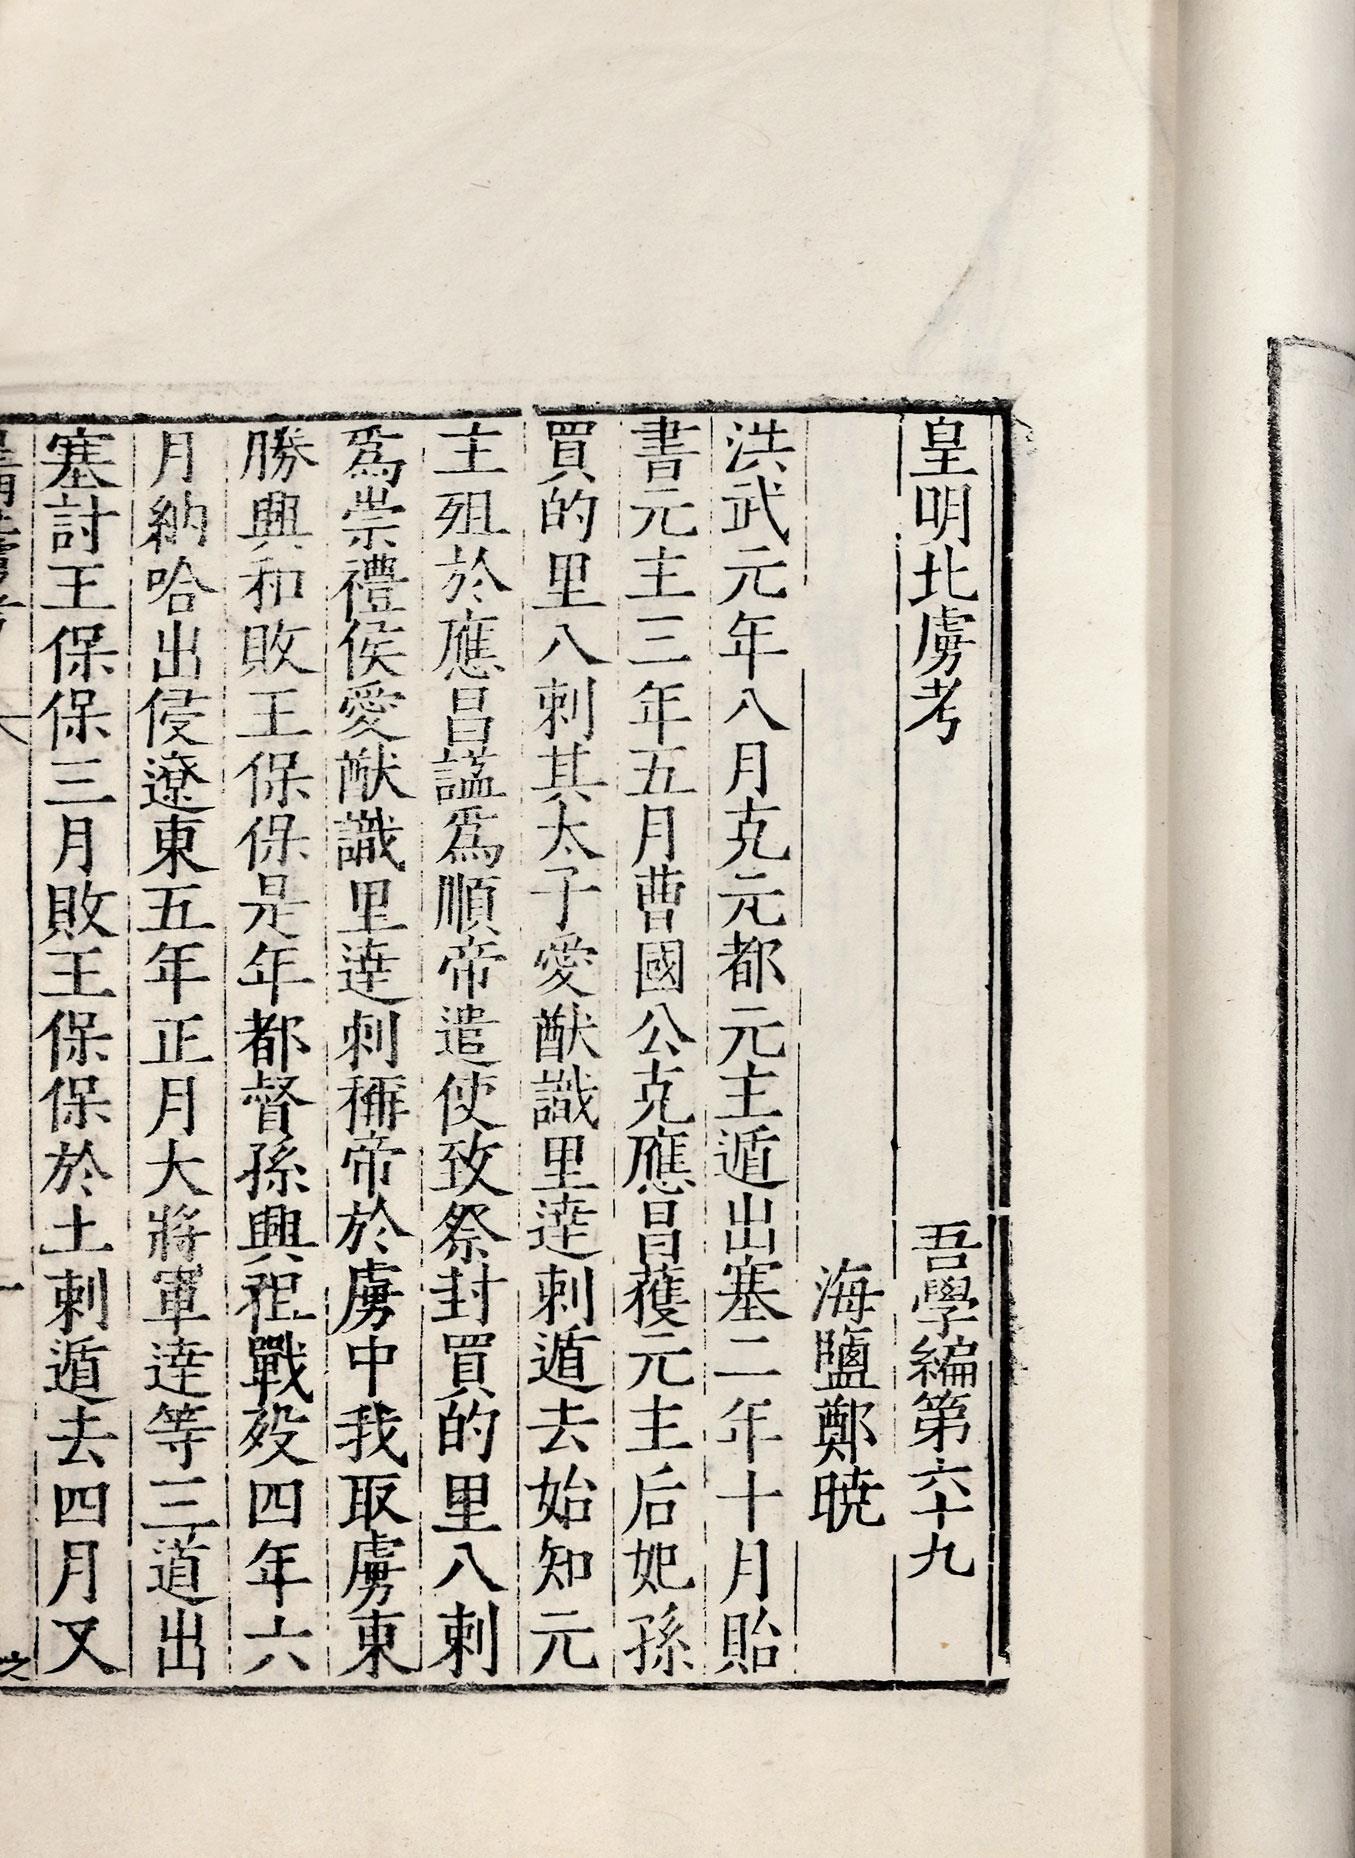 皇明北虜考　吾學編第六十九
海鹽鄭曉
洪武元年八月克元都元主遁出塞二年十月貽
書元主三年五月曹國公克應昌獲元主后妃孫
買的里八剌其太子愛猷識里達剌遁去始知元
主殂於應昌謚爲順帝遣使致祭封買的里八剌
爲崇禮侯愛猷識里達剌稱帝於虜中我取虜東
勝興和敗王保保是年都督孫興祖戰歿四年六
月納哈出侵遼東五年正月大將軍達等三道出
塞討王保保三月敗王保保於土剌遁去四月又